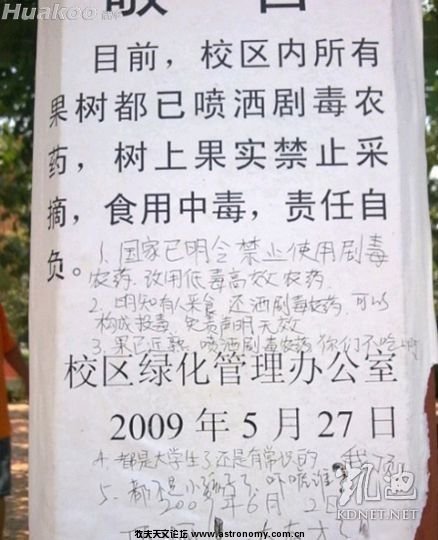 Huakoo
敬 告
目前，校区内所有
果树都已喷洒剧毒农
药，树上果实禁止采
摘，食用中毒，责任自
负。
1. 国家已明令禁止使用剧毒
农药. 改用低毒高效农药.
2. 明知有人采食 还洒剧毒农药. 可以
构成投毒. 免责声明无效
3. 果已近熟. 喷洒剧毒农药 你们不吃啊
校区绿化管理办公室
2009 年 5 月 27 日
4. 都是大学生了 还是有常识的
5. 都不是小孩子了 吓唬谁
2009年6月2日
凯迪
KDNET.NET
牧夫天文论坛 - www.astronomy.com.cn